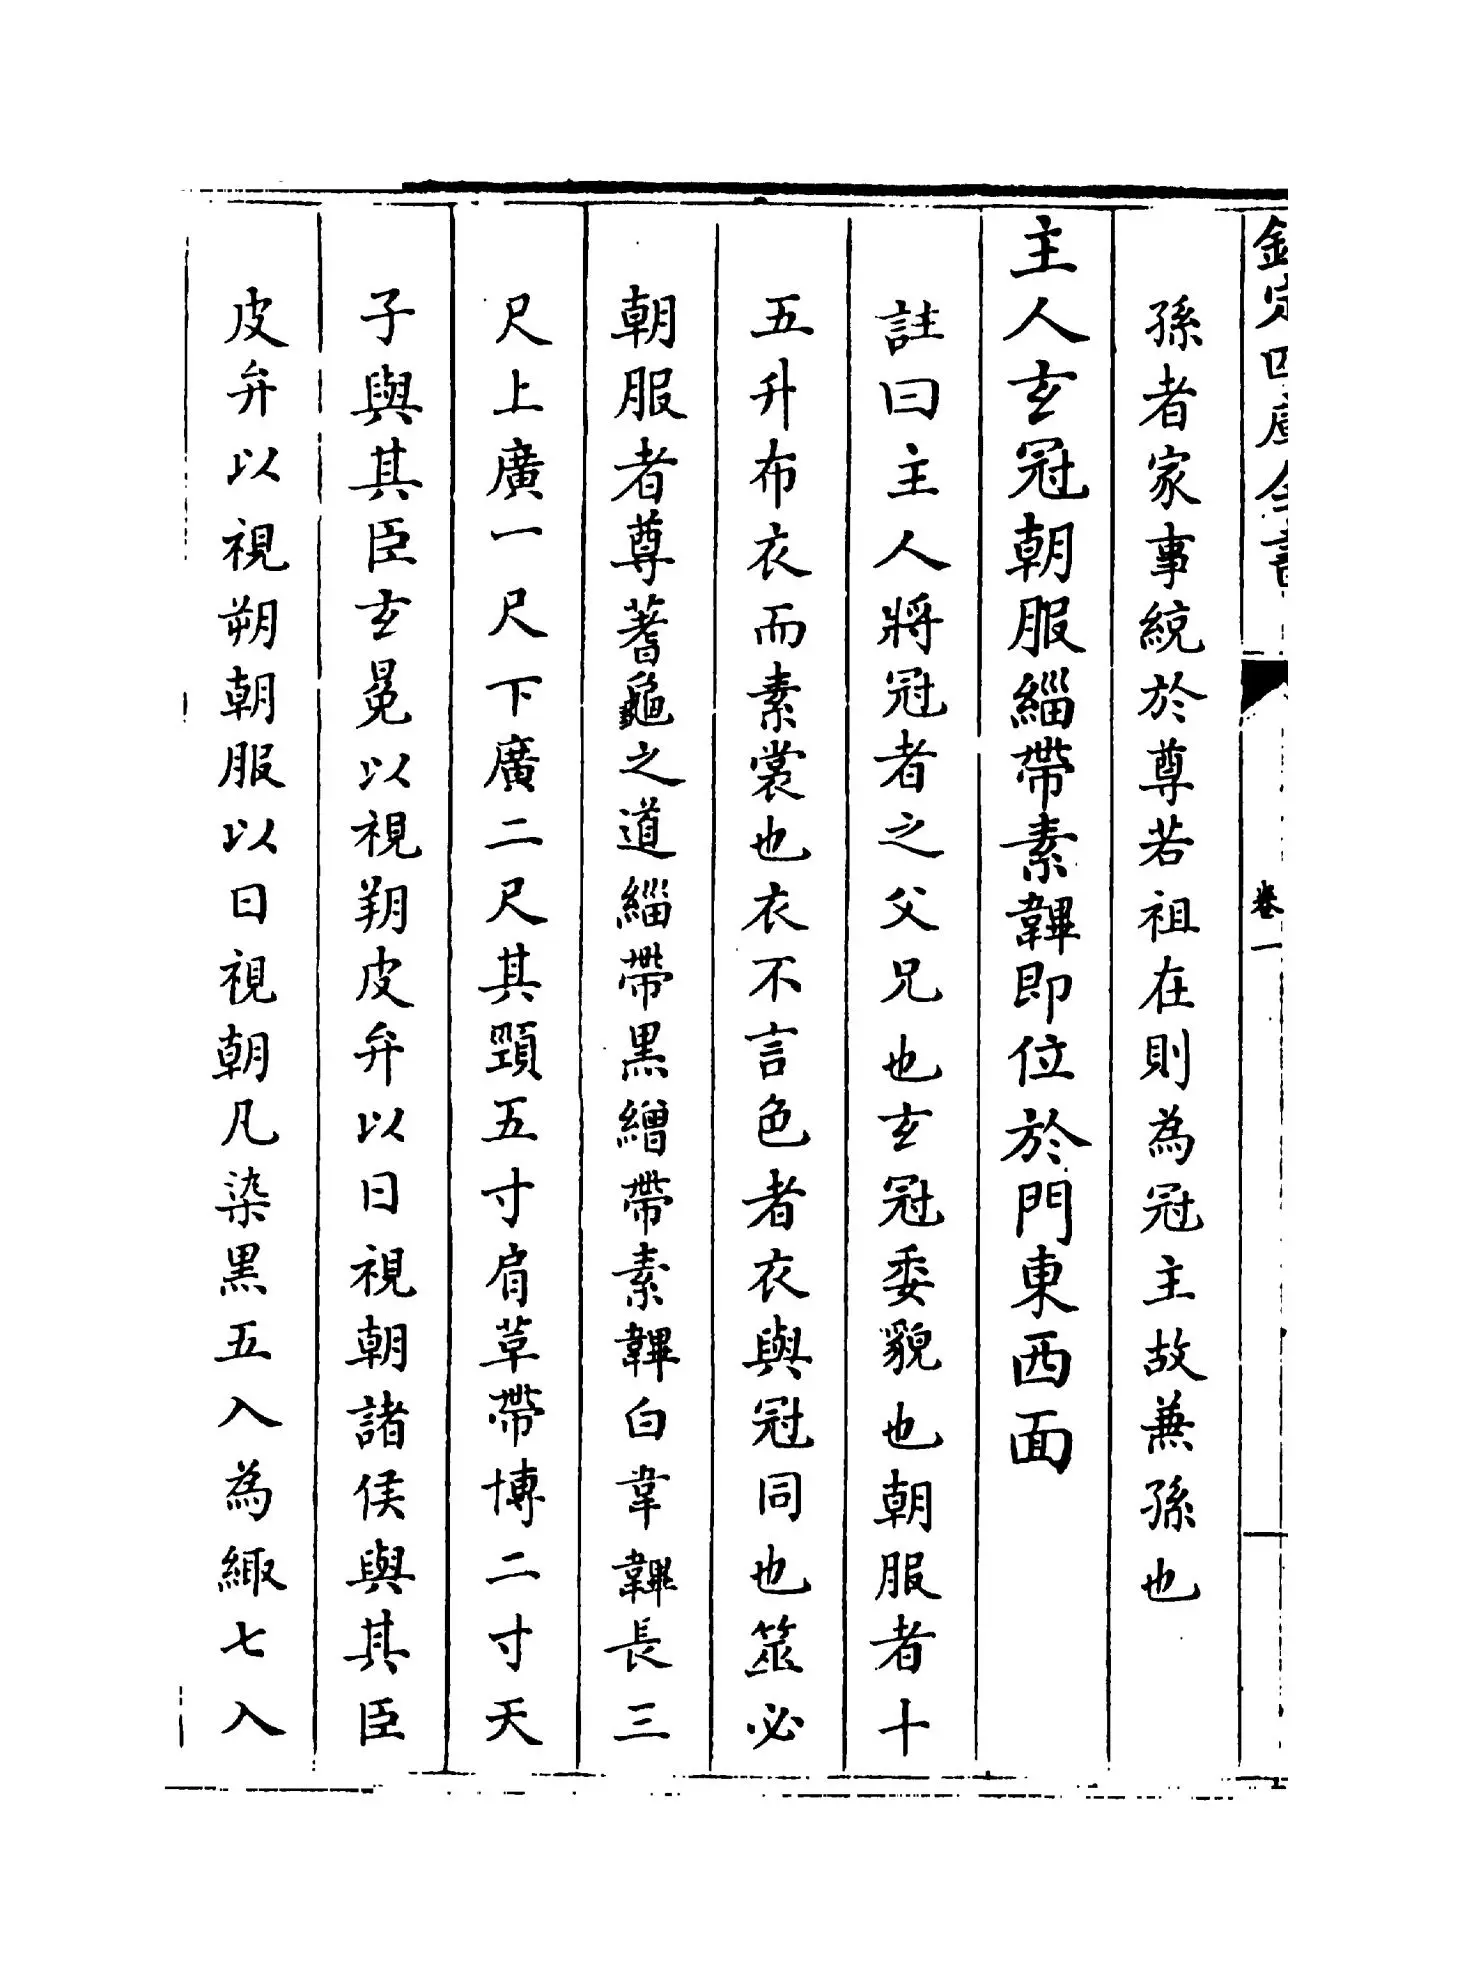 欽定四庫全書
卷一
孫者家事統於尊若祖在則為冠主故兼孫也
主人玄冠朝服緇帶素韠即位於門東西面
註曰主人將冠者之父兄也玄冠委貌也朝服者十
五升布衣而素裳也衣不言色者衣與冠同也筮必
朝服者尊蓍龜之道緇帶黑繒帶素韠白韋韠長三
尺上廣一尺下廣二尺其頸五寸肩革帶博二寸天
子與其臣玄冕以視朔皮弁以日視朝諸侯與其臣
皮弁以視朔朝服以日視朝凡染黑五入為緅七入